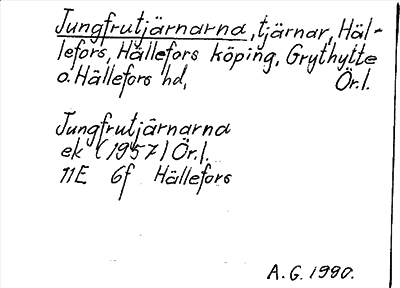 Jungfrutjärnarna, tjärnar, Häl-
lefors, Hällefors köping, Grythytte
o. Hällefors hd, Ör.l.
Jungfrutjärnarna
ek (1957) Ör.l.
11E 6f Hällefors
A.G. 1990.